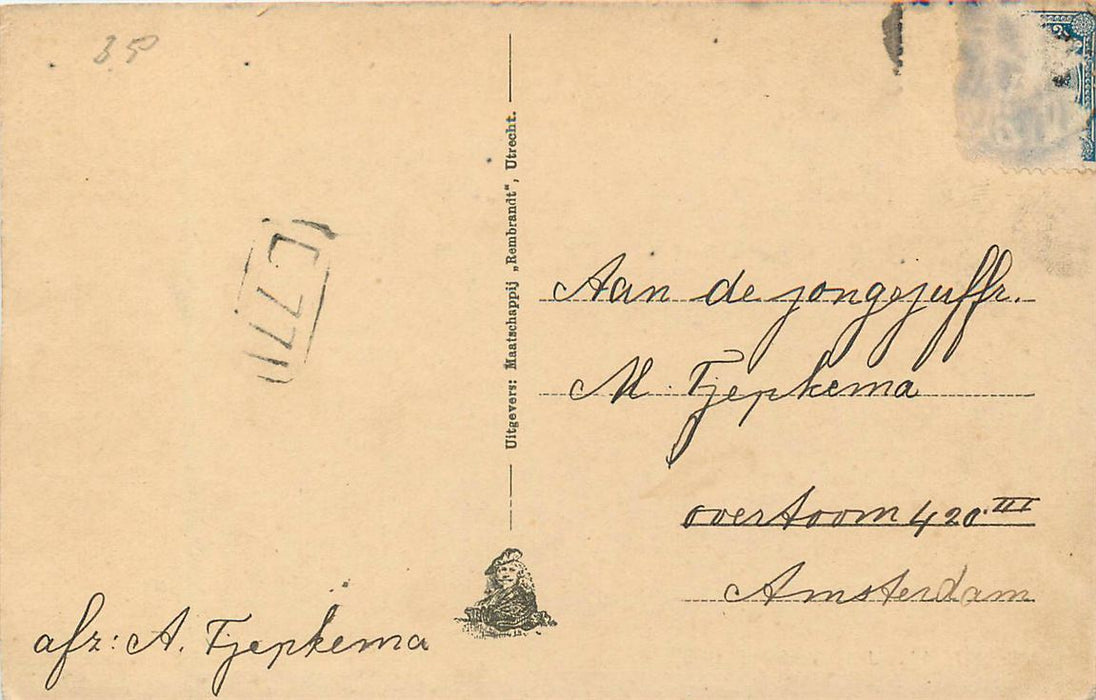 BP
C 771
Uitgevers: Maatschappij „Rembrandt", Utrecht.
Aan de jongejuffr.
M. Tjepkema
overtoom 420 III
Amsterdam
afz: A. Tjepkema